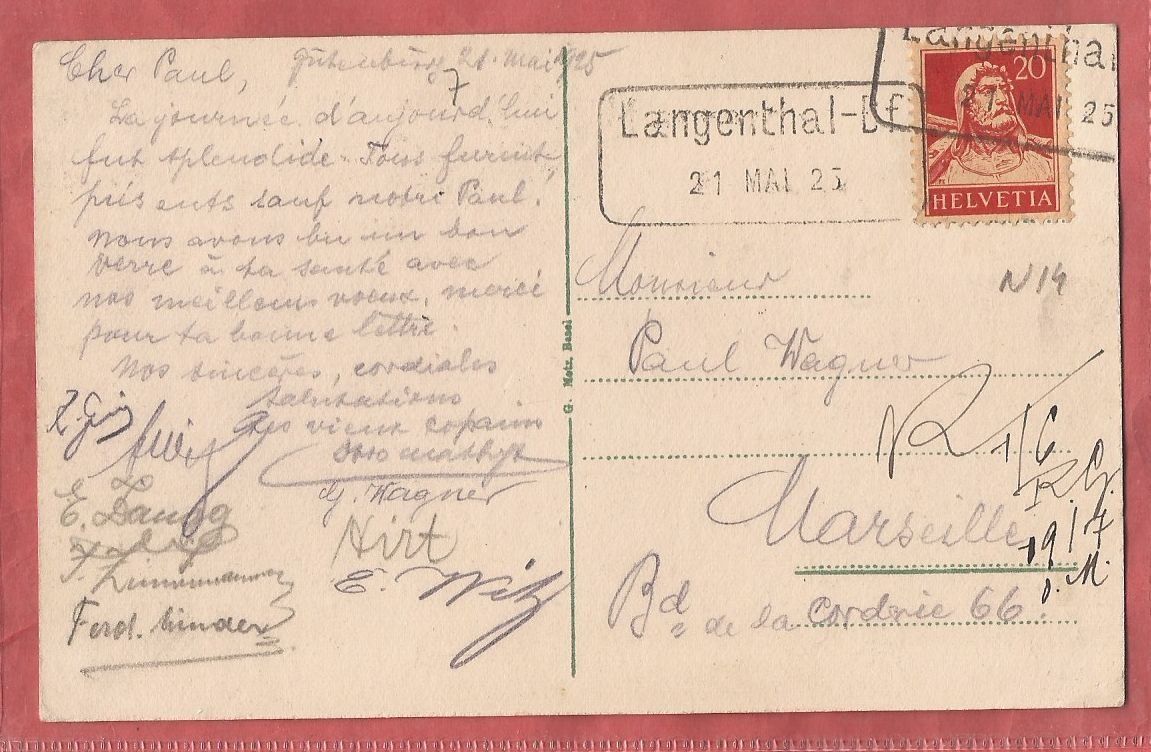 Cher Paul, Gutenburg, 21. Mai 1925
La journée d'aujourd'hui
fut splendide. Tous furent
présents sauf notre Paul.
Nous avons bu un bon
verre à ta santé avec
nos meilleurs voeux, merci
pour ta bonne lettre.
Nos sincères, cordiales
salutations
Les vieux copains
G. Wagner
Nirt
E. Witz
F. Zimmermann
Ferd. Linder
G. Metz, Basel
Langenthal-Bf
21 MAI 25
Langenthal
21 MAI 25
20
HELVETIA
N 14
Monsieur
Paul Wagner
Marseille
19/7
Bd de la Corderie 66.